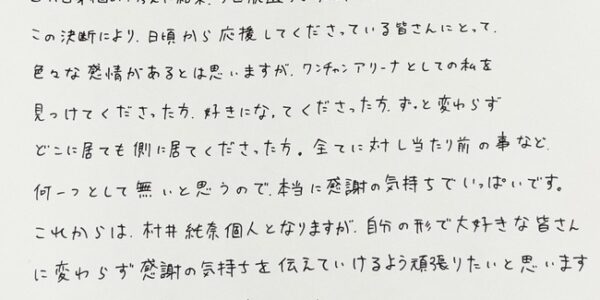 この決断により、日頃から応援してくださっている皆さんにとって、
色々な感情があるとは思いますが、ワンチャンアリーナとしての私を
見つけてくださった方、好きになってくださった方、ずっと変わらず
どこに居ても側に居てくださった方。全てに対し当たり前の事など、
何一つとして無いと思うので、本当に感謝の気持ちでいっぱいです。
これからは、村井純奈個人となりますが、自分の形で大好きな皆さん
に変わらず感謝の気持ちを伝えていけるよう頑張りたいと思います